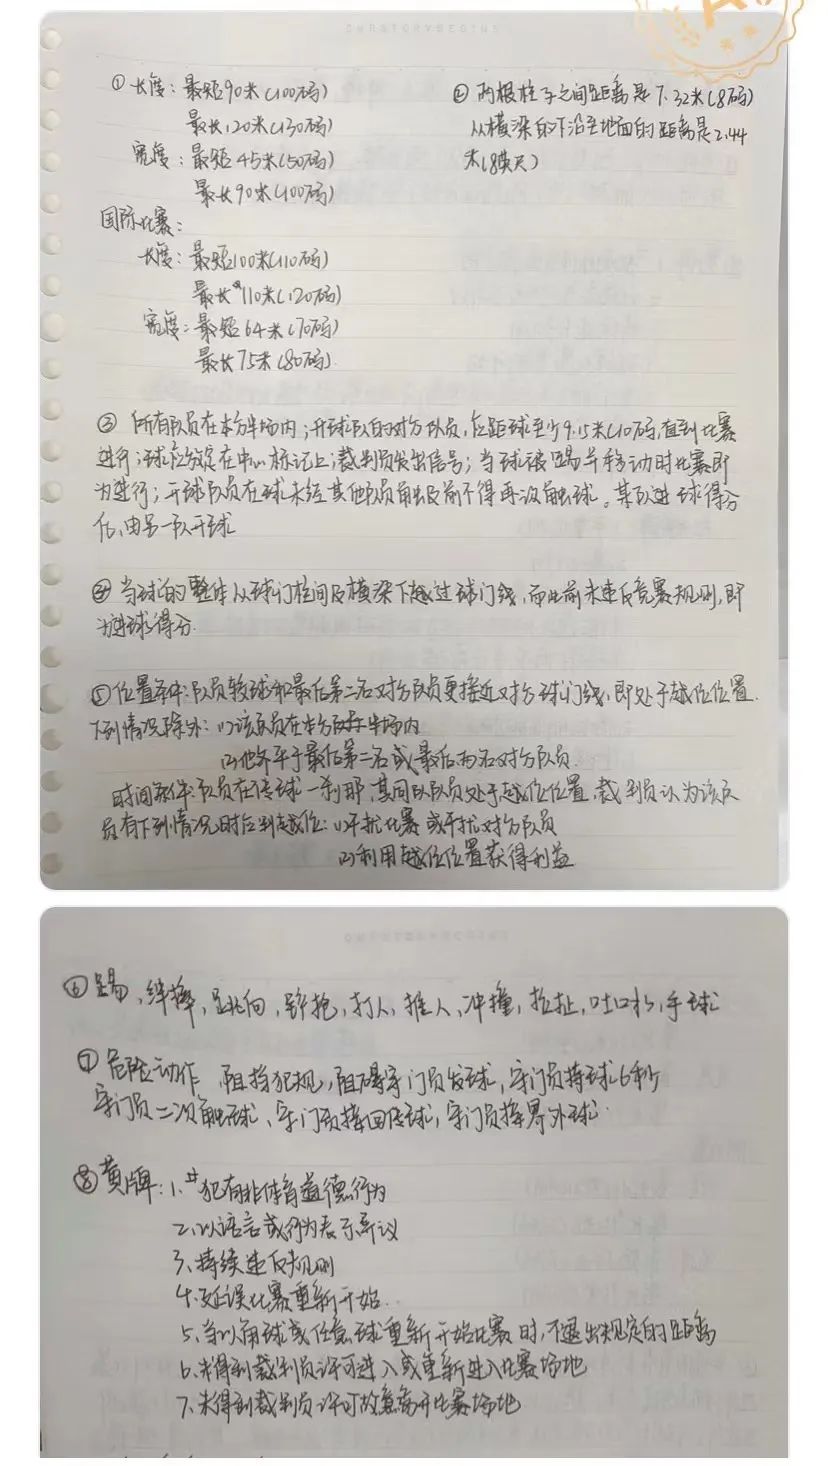 ① 长度：最短90米(100码)
最长120米(130码)
宽度：最短45米(50码)
最长90米(100码)
国际比赛：
长度：最短100米(110码)
最长110米(120码)
宽度：最短64米(70码)
最长75米(80码)
② 两根柱子之间距离是7.32米(8码)
从横梁的下沿至地面的距离是2.44
米(8英尺)
③ 所有队员在本方半场内；开球队的对方队员，应距球至少9.15米(10码)，直到比赛
进行；球应放定在中心标记上；裁判员发出信号；当球被踢并移动时比赛即
为进行；开球队员在球未经其他队员触及前不得再次触球。某队进球得分
后，由另一队开球
④ 当球的整体从球门柱间及横梁下越过球门线，而此前未违反竞赛规则，即
为进球得分.
⑤ 位置条件：队员较球和最后第二名对方队员更接近对方球门线，即处于越位位置.
下列情况除外：(1)该队员在本方半场内
(2)他齐平于最后第二名或最后两名对方队员.
时间条件：队员在传球一刹那，其同队队员处于越位位置，裁判员认为该队
员有下列情况时应判越位：(1)干扰比赛或干扰对方队员
(2)利用越位位置获得利益
⑥ 踢，绊摔，跳向，打人，推人，冲撞，拉扯，吐口水，手球
⑦ 危险动作，阻挡犯规，阻碍守门员发球，守门员持球6秒
守门员二次触球、守门员接回传球，守门员接界外球.
⑧ 黄牌：1、犯有非体育道德行为
2、以语言或行为表示异议
3、持续违反规则
4、延误比赛重新开始..
5、当以角球或任意球重新开始比赛时，不退出规定的距离
6、未得到裁判员许可进入或重新进入比赛场地
7、未得到裁判员许可故意离开比赛场地